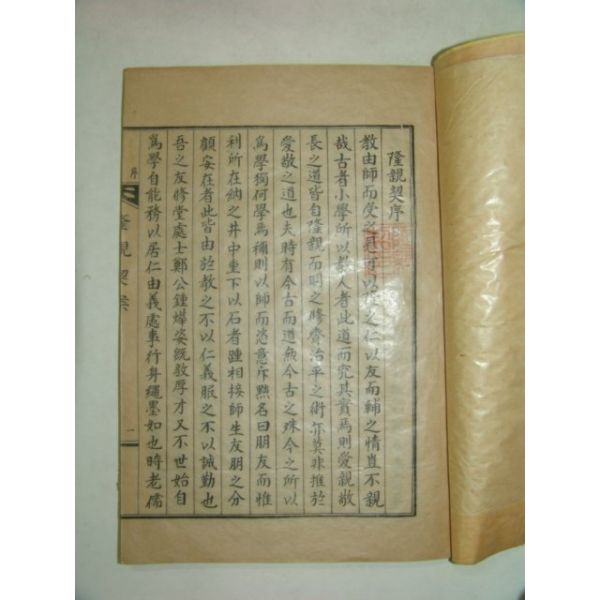 隆親契序
教由師而受之恩可以
之仁以友而輔之情豈不親
哉古者小學所以教人者此道而究其實焉則愛親敬
長之道皆自隆親而明之脩齊治平之術亦莫非推於
愛敬之道也夫時有今古而道無今古之殊今之所以
爲學獨何學焉稱則以師而恣意斥黜名曰朋友而惟
利所在納之井中重下以石者踵相接師生友朋之分
顧安在者此皆由於教之不以仁義服之不以誠勤也
吾之友脩堂處士鄭公鍾燁姿旣敦厚才又不世始自
爲學自能務以居仁由義處事行身繩墨如也時老儒
序
隆親契案
一